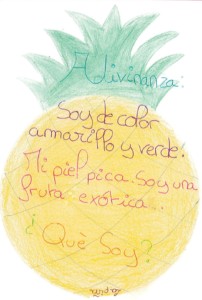 Adivinanza:
Soy de color
amarillo y verde.
Mi piel pica. Soy una
fruta exótica...
¿Què Soy?